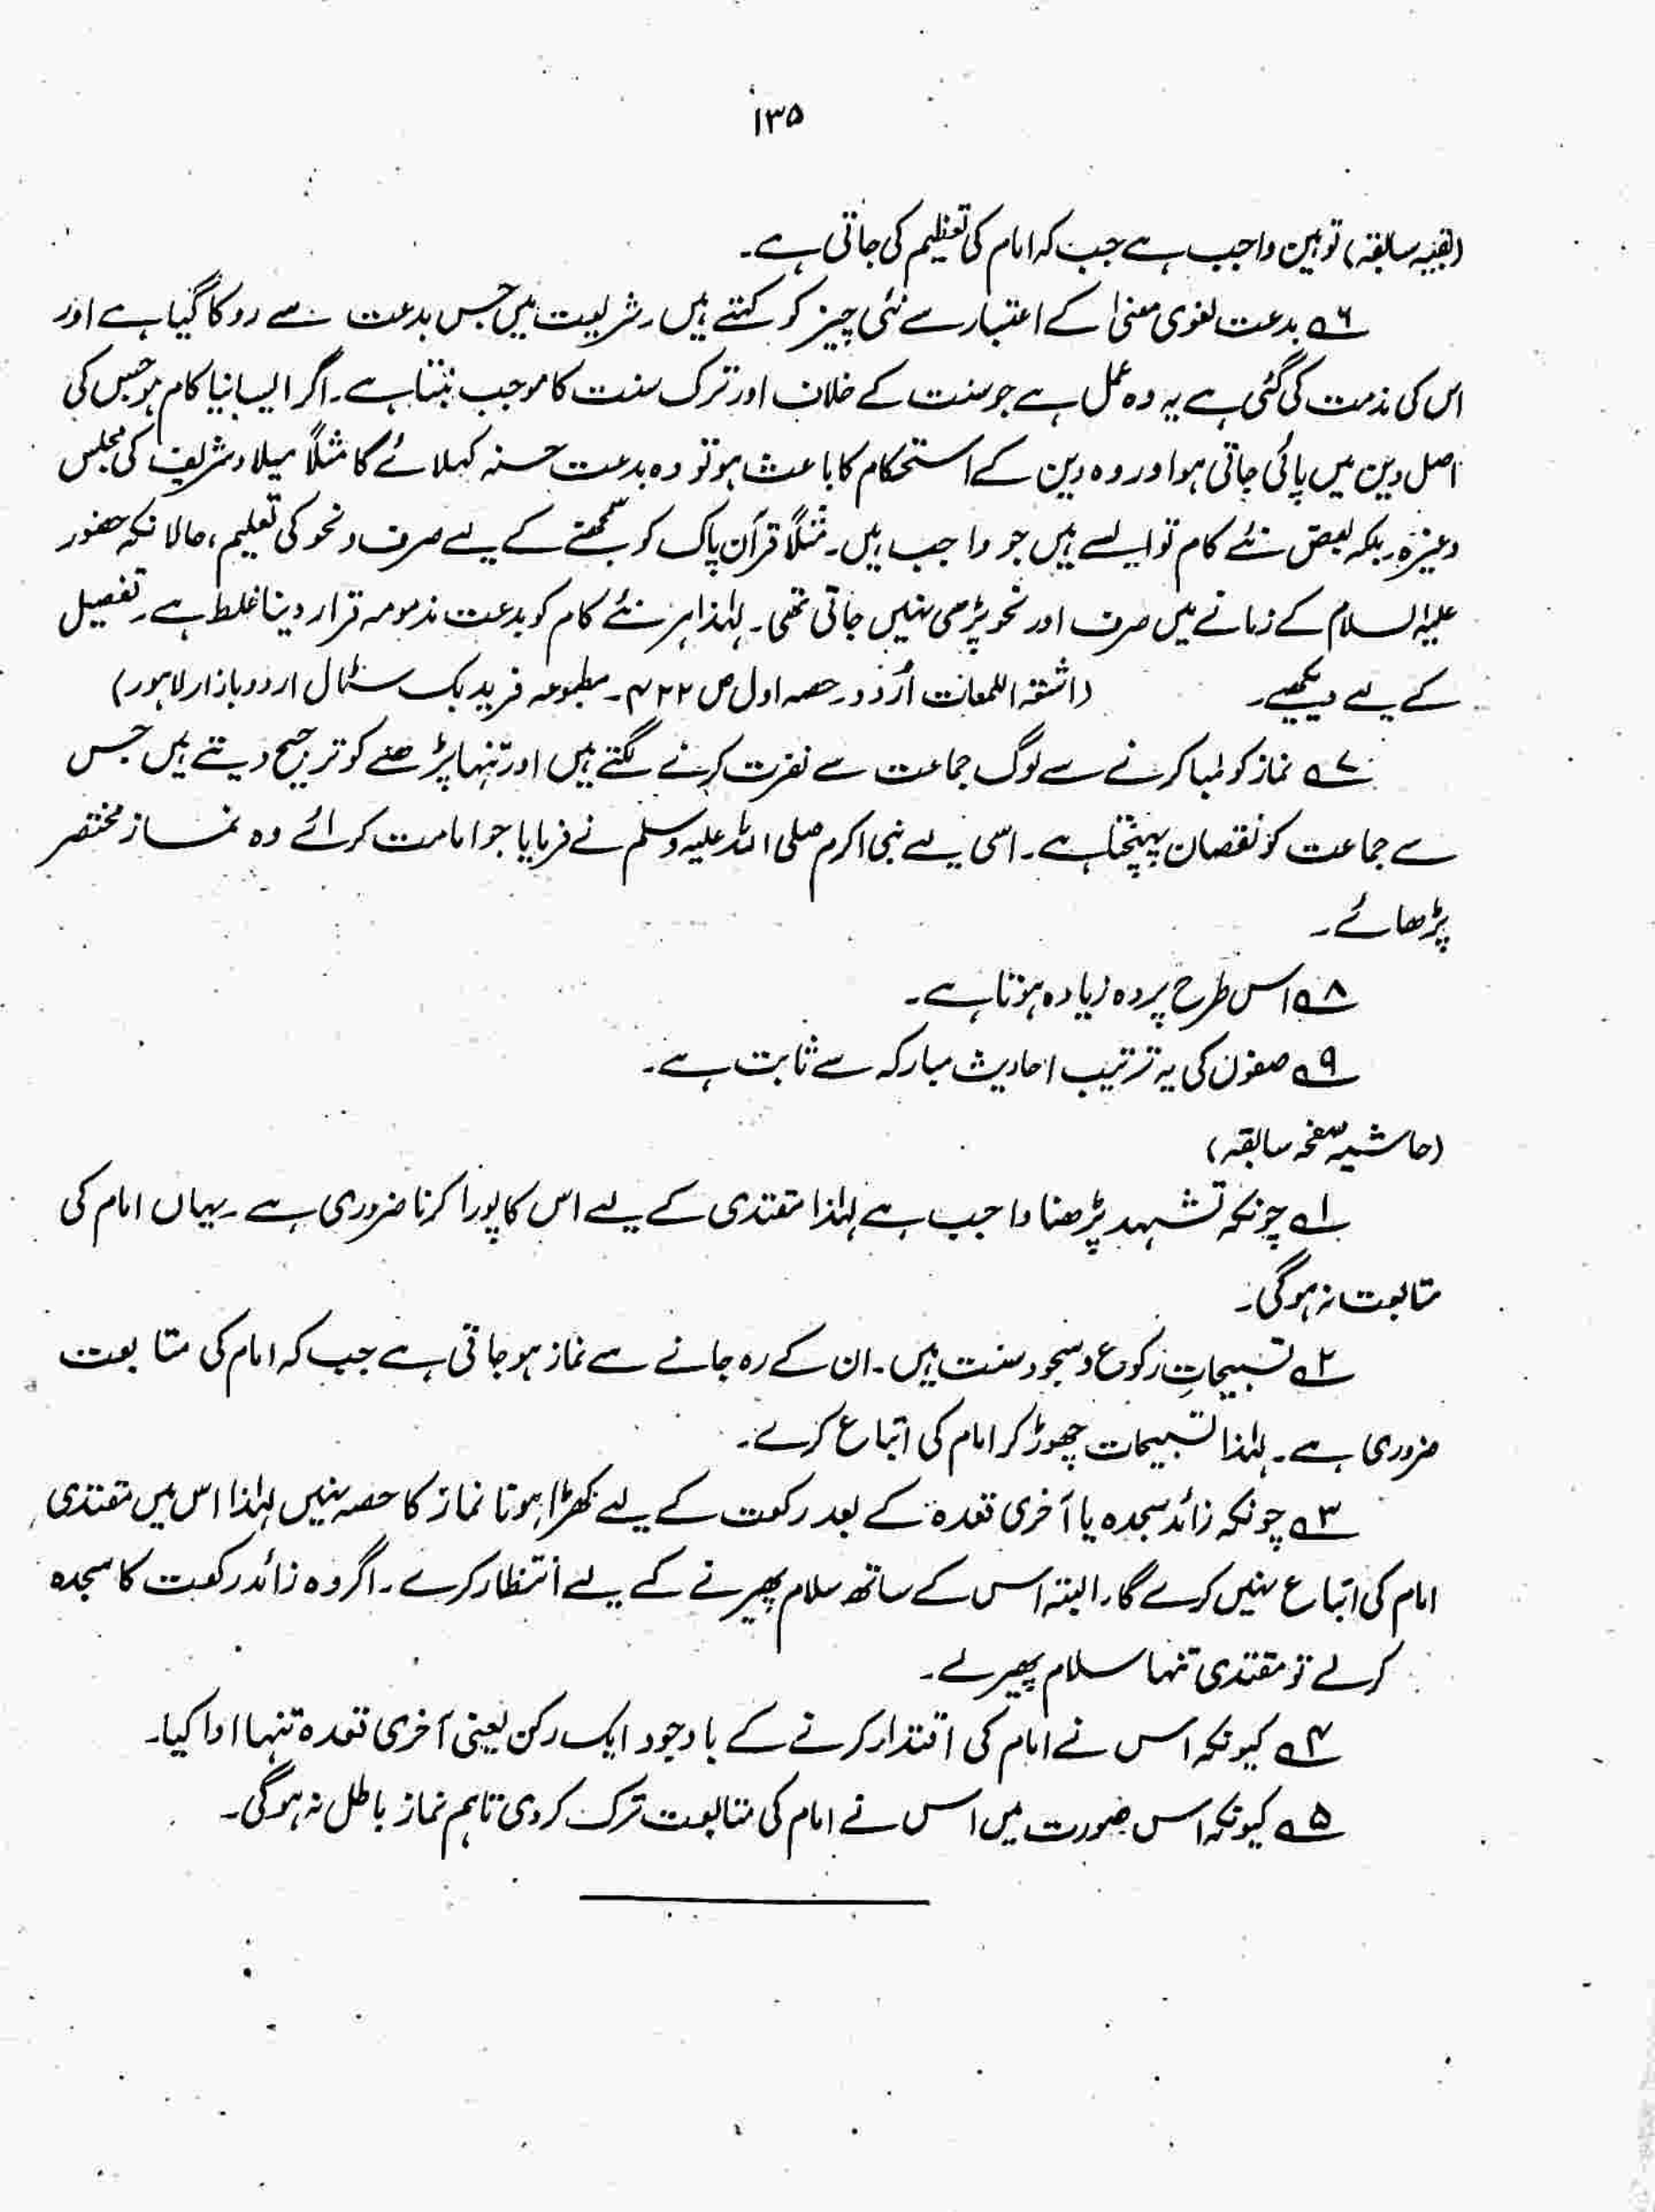 ۱۳۵
(بقیہ سابقہ) توہین واجب ہے جب کہ امام کی تعظیم کی جاتی ہے۔
۶؎ بدعت لغوی معنیٰ کے اعتبار سے نئی چیز کو کہتے ہیں۔ شریعت میں جس بدعت سے روکا گیا ہے اور
اس کی مذمت کی گئی ہے یہ وہ عمل ہے جو سنت کے خلاف اور ترک سنت کا موجب بنتا ہے۔ اگر ایسا نیا کام ہو جس کی
اصل دین میں پائی جاتی ہو اور وہ دین کے استحکام کا باعث ہو تو وہ بدعت حسنہ کہلائے گا مثلاً میلاد شریف کی مجلس
وغیرہ۔ بلکہ بعض نئے کام تو ایسے ہیں جو واجب ہیں۔ مثلاً قرآن پاک کو سمجھنے کے لیے صرف و نحو کی تعلیم، حالانکہ حضور
علیہ السلام کے زمانے میں صرف اور نحو پڑھی نہیں جاتی تھی۔ لہٰذا ہر نئے کام کو بدعت مذمومہ قرار دینا غلط ہے۔ تفصیل
کے لیے دیکھیے۔ (اشعۃ اللمعات اُردو، حصہ اول ص ۴۲۲۔ مطبوعہ فرید بک سٹال اردو بازار لاہور)
۷؎ نماز کو لمبا کرنے سے لوگ جماعت سے نفرت کرنے لگتے ہیں اور تنہا پڑھنے کو ترجیح دیتے ہیں جس
سے جماعت کو نقصان پہنچتا ہے۔ اسی لیے نبی اکرم صلی اللہ علیہ وسلم نے فرمایا جو امامت کرائے وہ نماز مختصر
پڑھائے۔
۸؎ اس طرح پردہ زیادہ ہوتا ہے۔
۹؎ صفوں کی یہ ترتیب احادیث مبارکہ سے ثابت ہے۔
(حاشیہ صفحہ سابقہ)
۱؎ چونکہ تشہد پڑھنا واجب ہے لہٰذا مقتدی کے لیے اس کا پورا کرنا ضروری ہے۔ یہاں امام کی
متابعت نہ ہوگی۔
۲؎ تسبیحاتِ رکوع و سجود سنت ہیں۔ ان کے رہ جانے سے نماز ہو جاتی ہے جب کہ امام کی متابعت
ضروری ہے۔ لہٰذا تسبیحات چھوڑ کر امام کی اتباع کرے۔
۳؎ چونکہ زائد سجدہ یا آخری قعدہ کے بعد رکعت کے لیے کھڑا ہونا نماز کا حصہ نہیں لہٰذا اس میں مقتدی
امام کی اتباع نہیں کرے گا۔ البتہ اس کے ساتھ سلام پھیرنے کے لیے انتظار کرے۔ اگر وہ زائد رکعت کا سجدہ
کرلے تو مقتدی تنہا سلام پھیرلے۔
۴؎ کیونکہ اس نے امام کی اقتدار کرنے کے باوجود ایک رکن یعنی آخری قعدہ تنہا ادا کیا۔
۵؎ کیونکہ اس صورت میں اس نے امام کی متابعت ترک کر دی تاہم نماز باطل نہ ہوگی۔